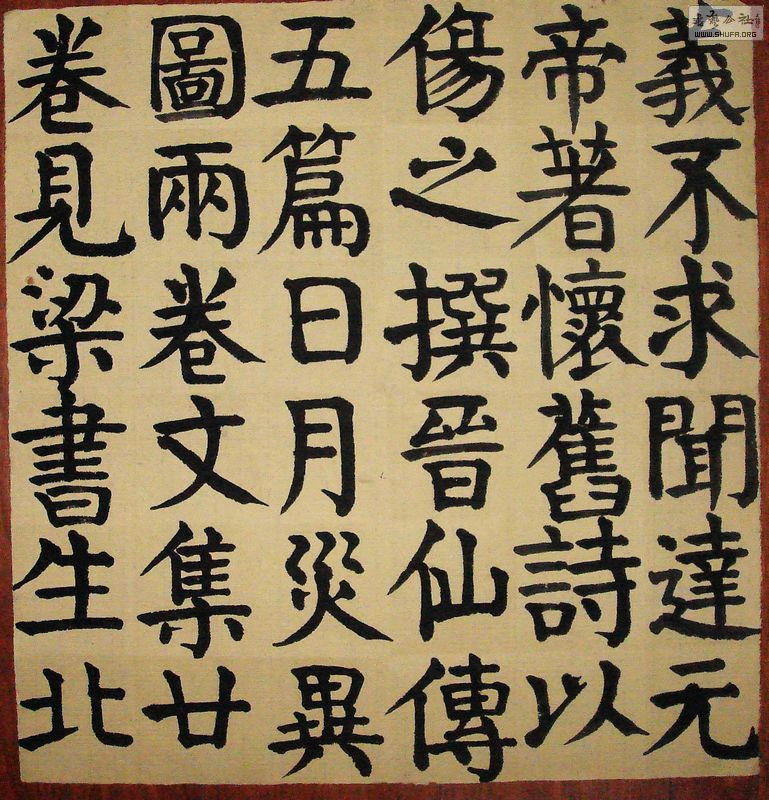 義不求聞達元
帝著懷舊詩以
傷之撰晉仙傳
五篇日月災異
圖兩卷文集廿
卷見梁書生北
WWW.SHUFA.ORG